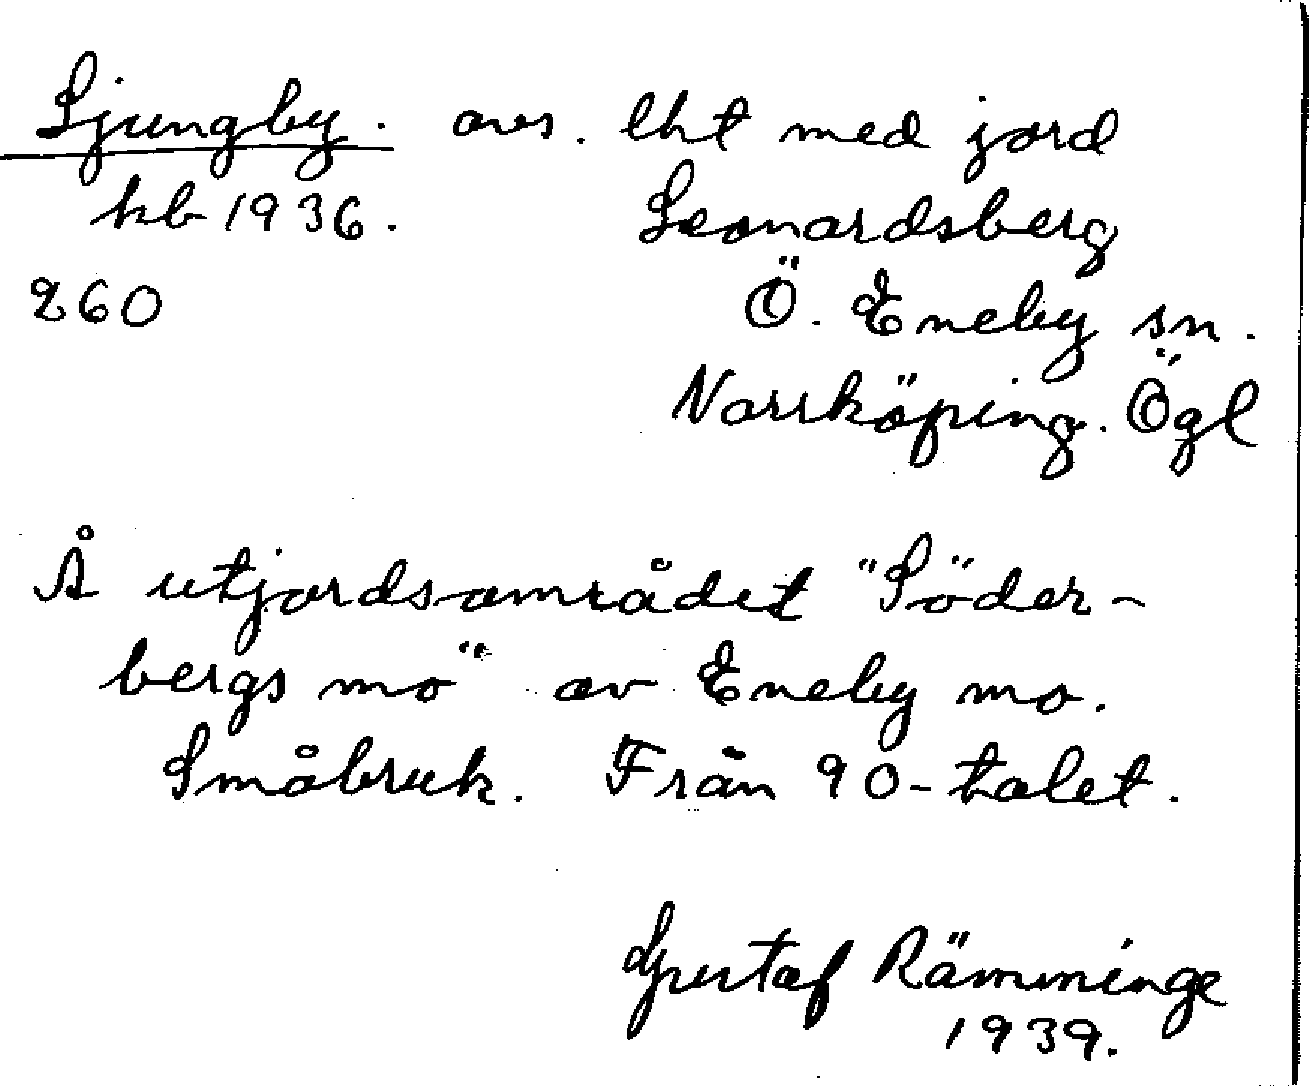 Ljungby. avs. lht med jord
kb 1936. Leonardsberg
260 Ö. Eneby sn.
Norrköping. Ögl
Å utjordsområdet "Söder-
bergs mo" av Eneby mo.
Småbruk. Från 90-talet.
Gustaf Rämminge
1939.